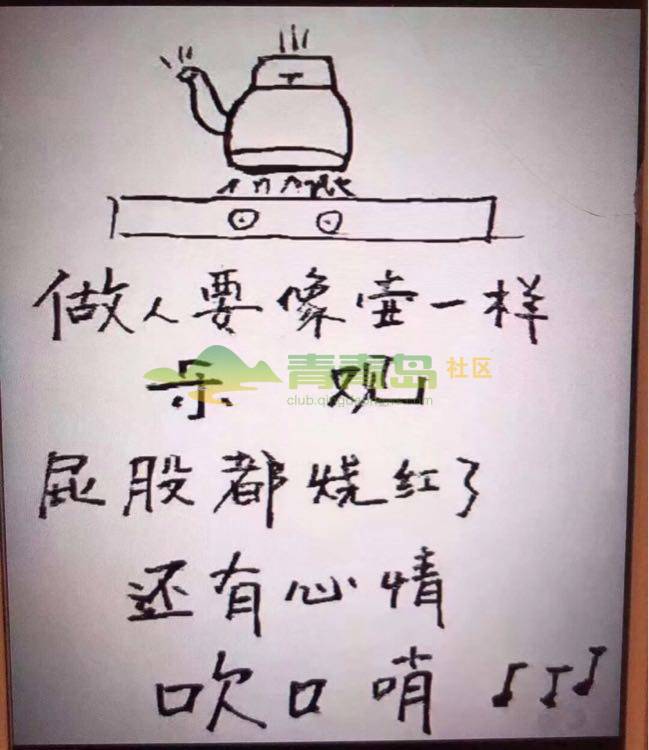 做人要像壶一样
乐观
青青岛社区
屁股都烧红了
还有心情
吹口哨